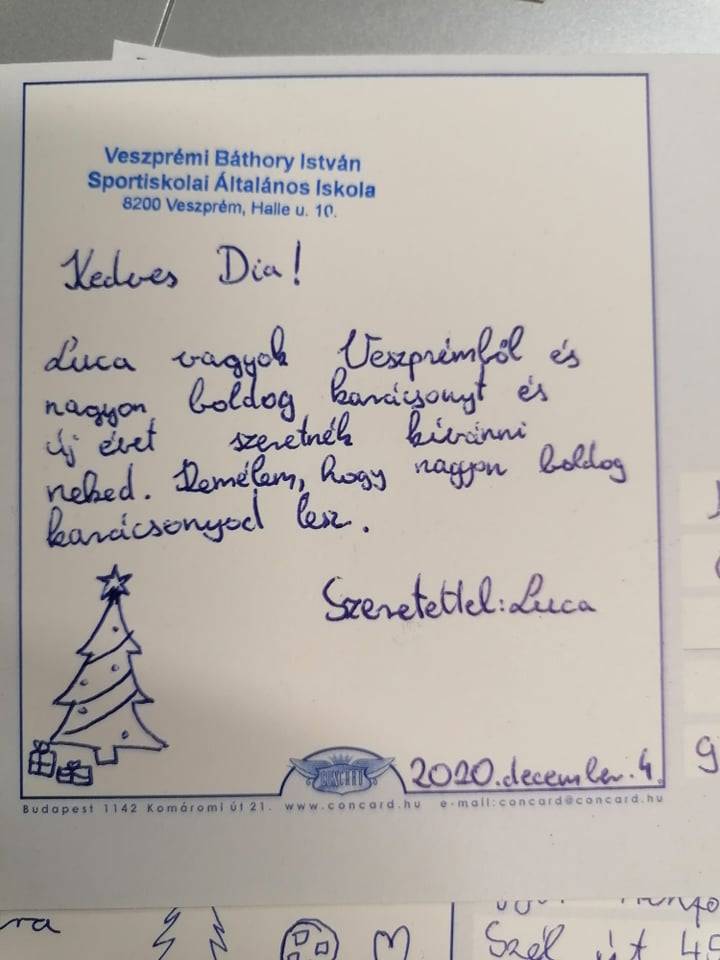 Veszprémi Báthory István
Sportiskolai Általános Iskola
8200 Veszprém, Halle u. 10.
Kedves Dia!
Luca vagyok Veszprémből és
nagyon boldog karácsonyt és
új évet szeretnék kívánni
neked. Remélem, hogy nagyon boldog
karácsonyod lesz.
Szeretettel: Luca
CONCARD
2020. december. 4.
Budapest 1142 Komáromi út 21. www.concard.hu e-mail:concard@concard.hu
ra
Szél út 45